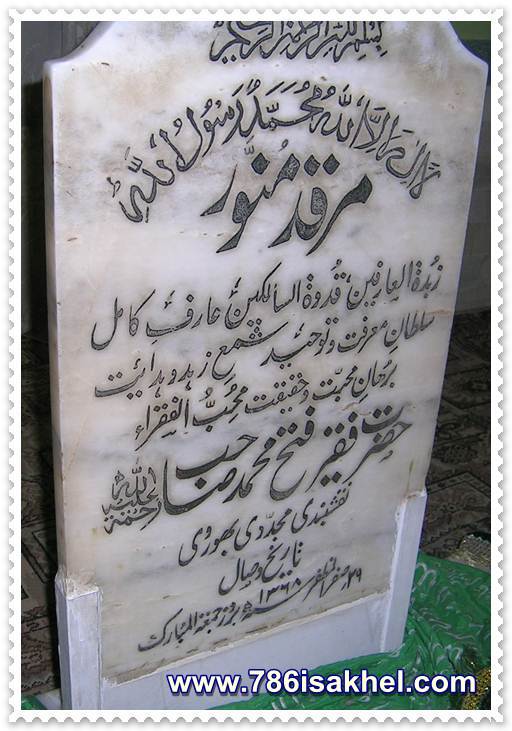 بسم اللہ الرحمن الرحیم
لَا اِلٰہَ اِلَّا اللہُ مُحَمَّدٌ رَسُوْلُ اللہِ
مرقد منوّر
زبدۃ العارفین، قدوۃ السالکین، عارف کامل
سلطان معرفت و توحید شمع زہد و ہدائیت
برہان محبت و حقیقت محبُّ الفقراء
حضرت فقیر فتح محمد صاحب رحمۃ اللہ علیہ
نقشبندی مجدّدی بھوروی
تاریخ وصال
۲۹ صفر المظفر ۱۳۶۸ھ بروز جمعۃ المبارک
www.786isakhel.com